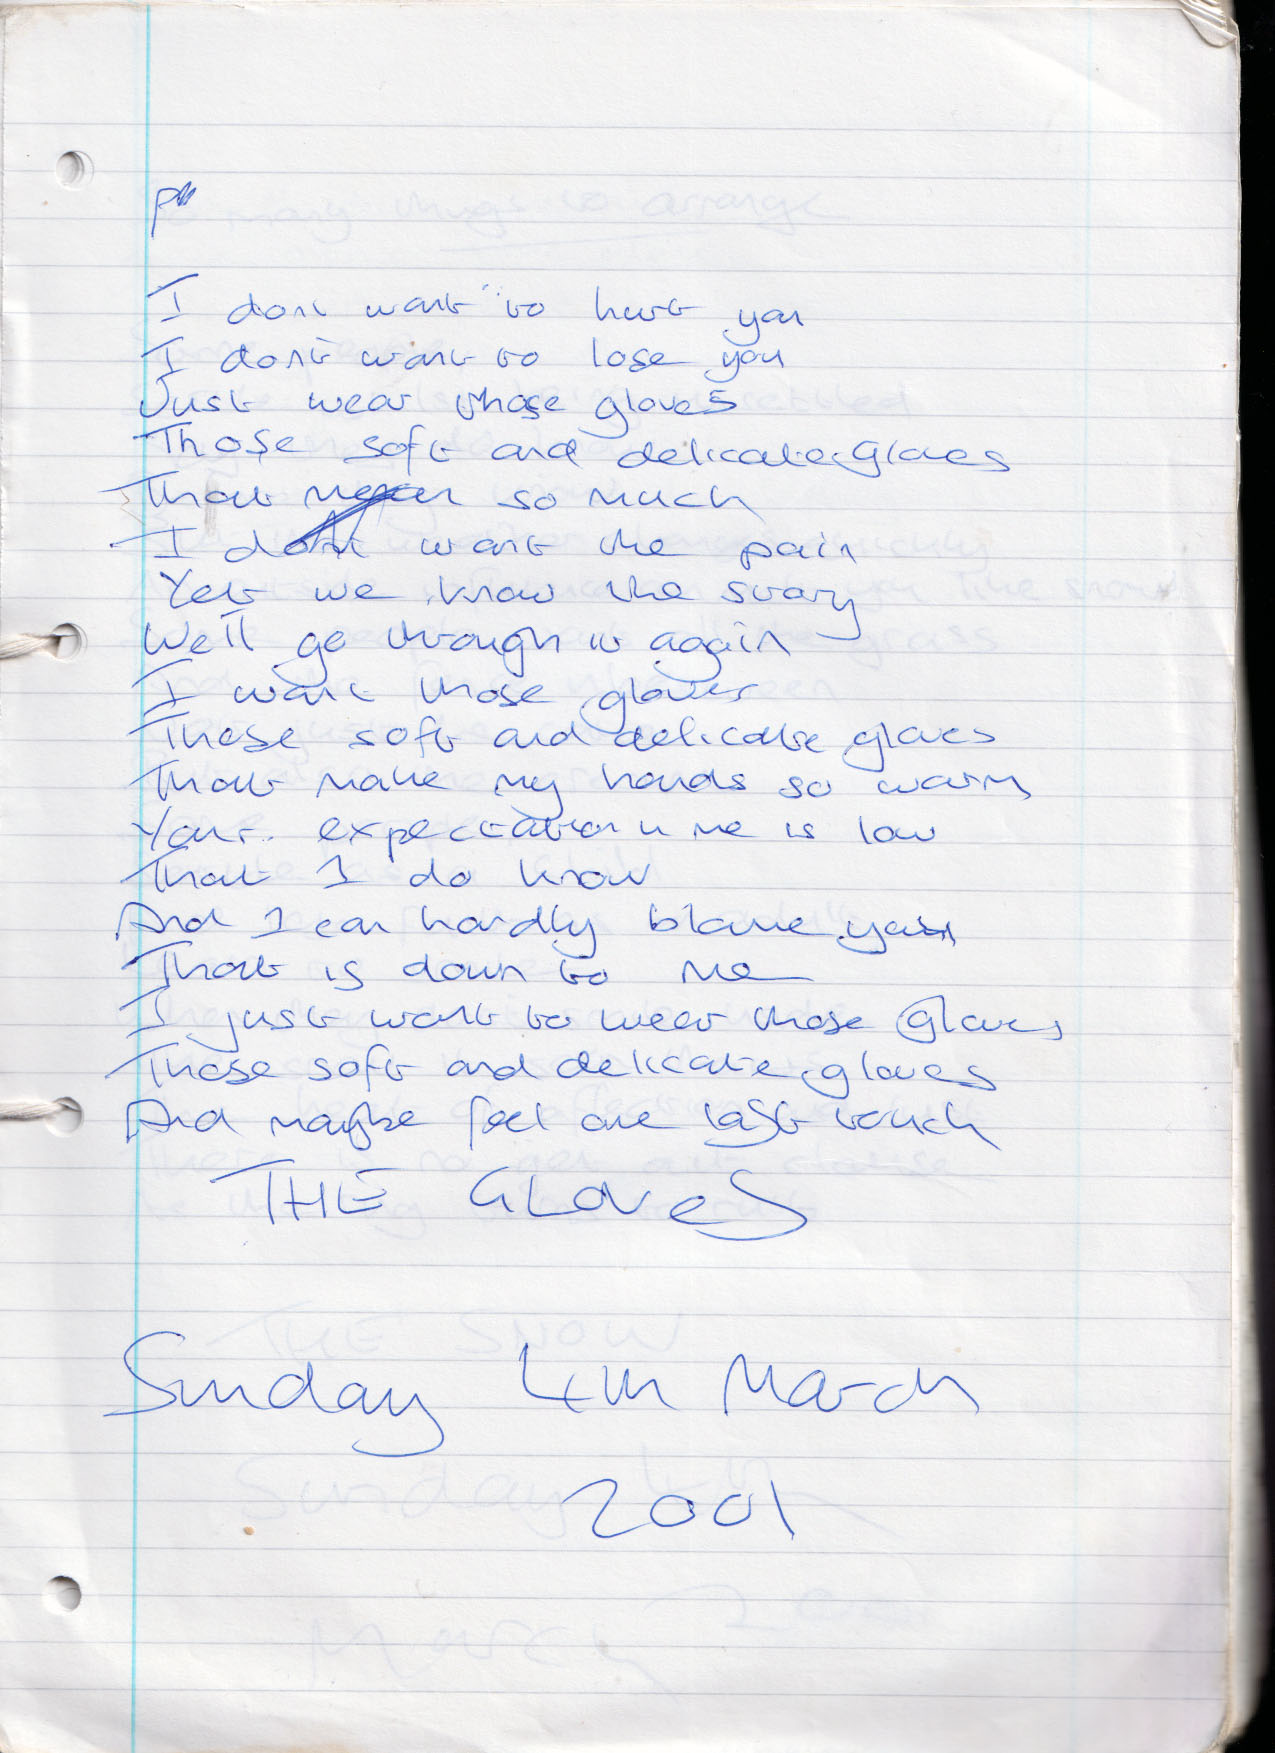 I dont want to hurt you
I dont want to lose you
Just wear those gloves
Those soft and delicate gloves
That mean so much
I dont want the pain
Yet we know the story
We'll go through it again
I want those gloves
These soft and delicate gloves
That make my hands so warm
Your expectation in me is low
That I do know
And I can hardly blame you
That is down to me
I just want to wear those gloves
These soft and delicate gloves
And maybe feel one last touch
THE GLOVES
Sunday 4th March
2001